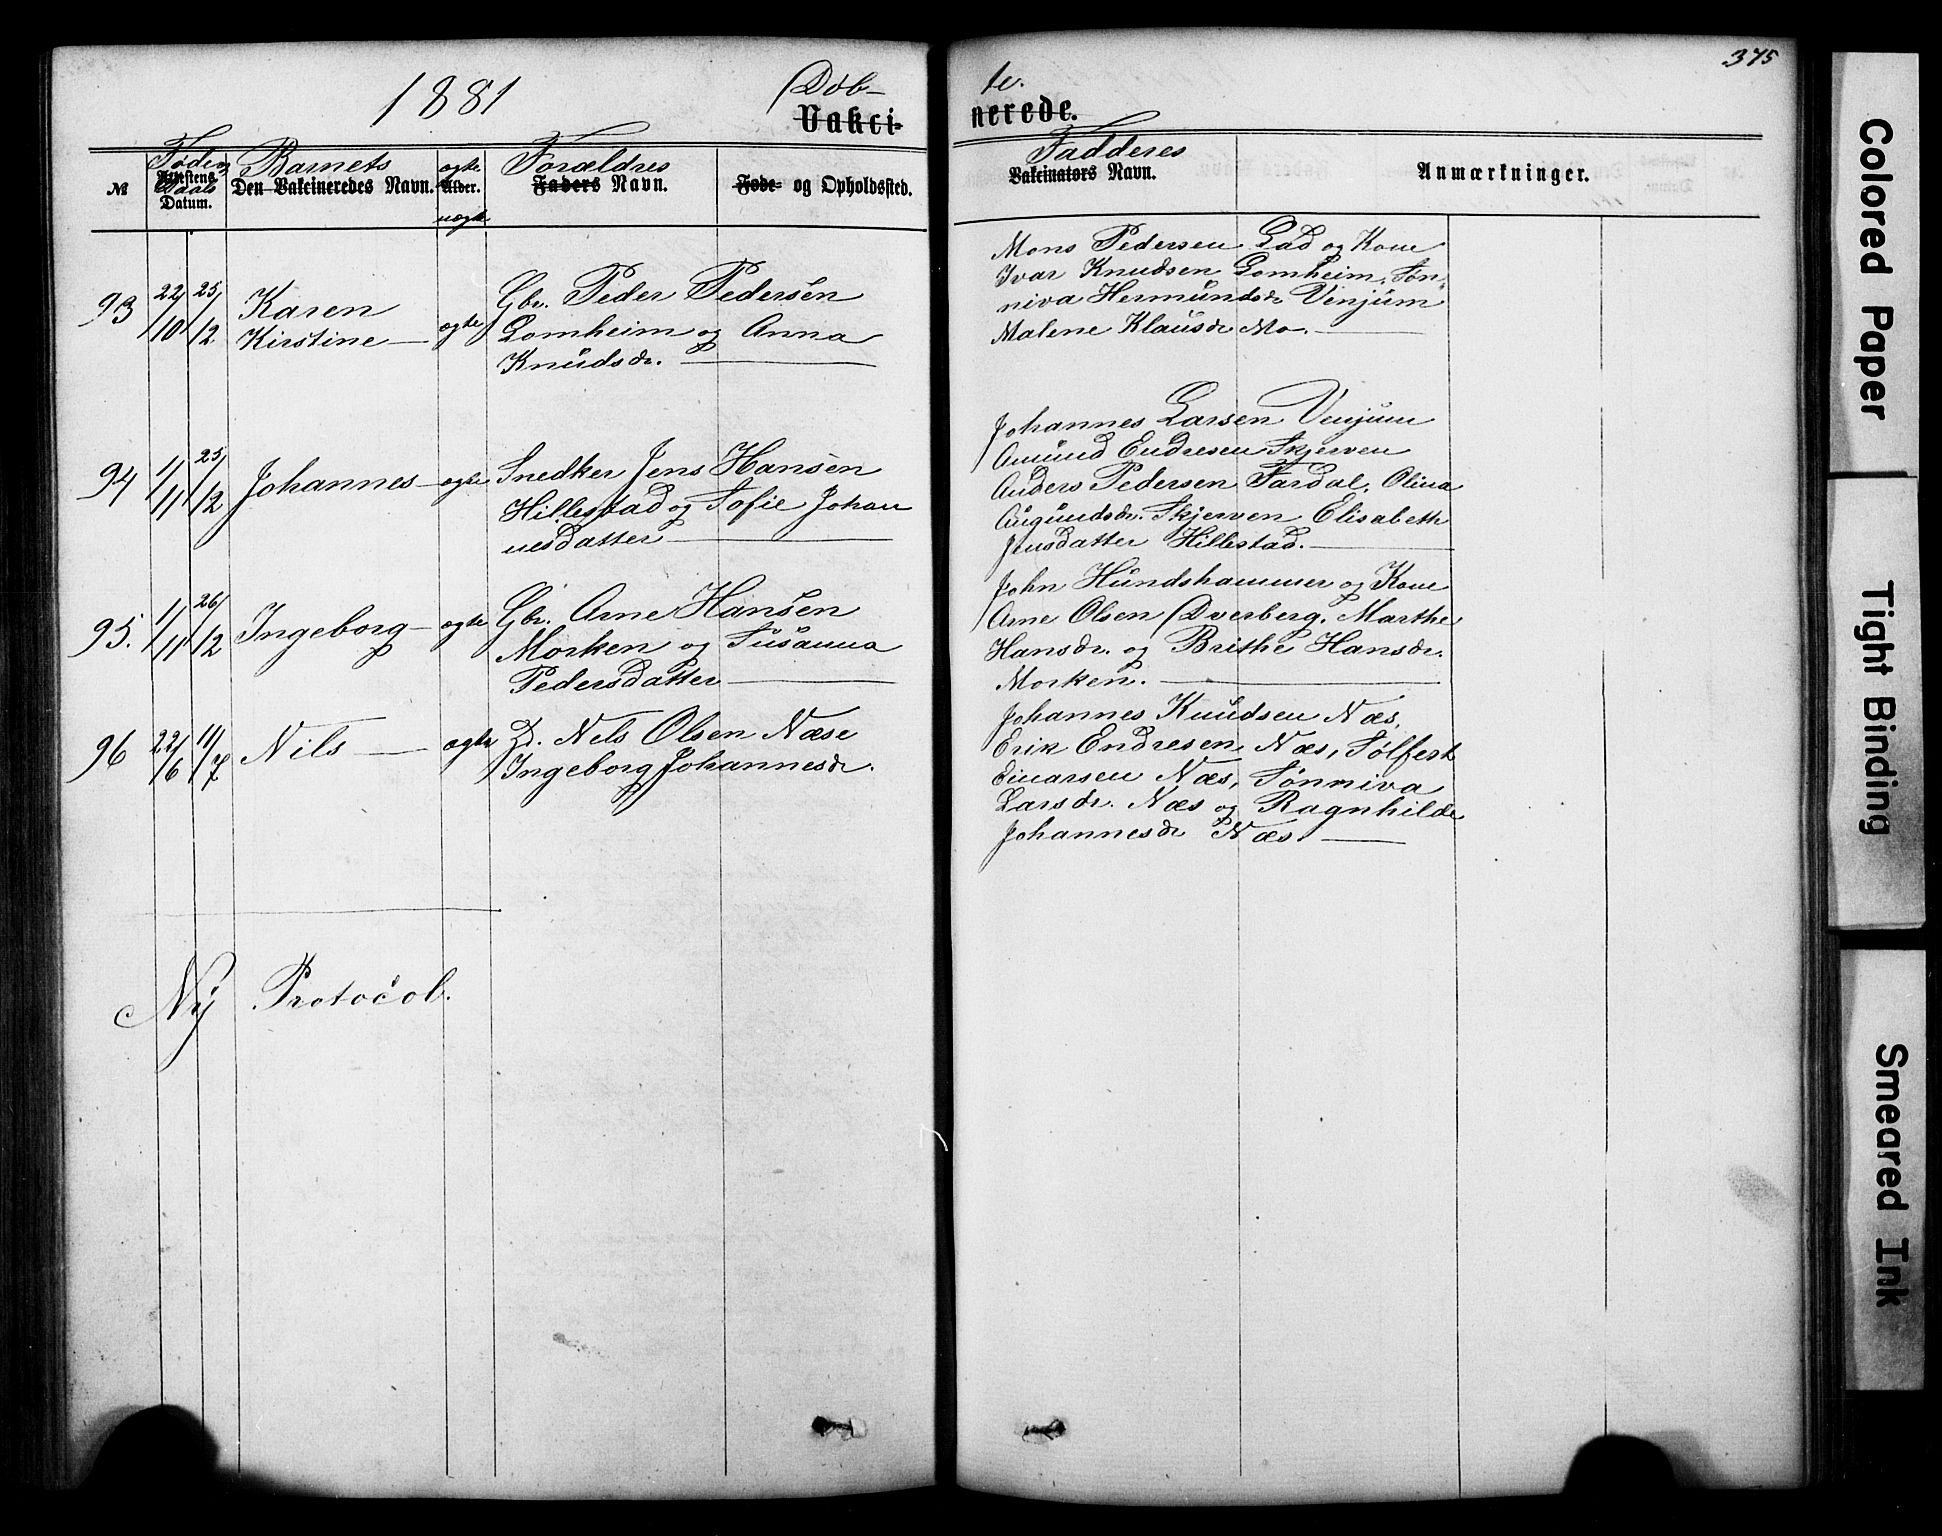 375
1881 Døbte.
Vakcinerede.
№
Føde og Daabs
Attestens Datum.
Barnets
Den Vakcineredes Navn.
ægte
Alder.
uægte
Forældres
Faders Navn.
Føde- og Opholdssted.
Fadderes
Vakcinators Navn.
Anmærkninger.
93 22/10 25/12 Karen ægte Gbr. Peder Pedersen
Kirstine — Lomheim og Anna
Knudsdr. —
Mons Pedersen Lad og Kone
Ivar Knudsen Lomheim, Søn-
niva Hermundsdr Venjum
Malene Klausdr Mo. —
94 1/11 25/12 Johannes — ægte Snedker Jens Hansen
Hillestad og Sofie Johan
nesdatter —
Johannes Larsen Venjum
Amund Endresen Skjerven
Anders Pedersen Fardal, Olina
Augundsdr. Skjerven Elisabeth
Jensdatter Hillestad. —
95. 1/11 26/12 Ingeborg — ægte Gbr. Arne Hansen
Morken og Susanna
Pedersdatter —
John Hundshammer og Kone
Arne Olsen Dverberg, Marthe
Hansdr. og Brithe Hansdr.
Morken. —
96 22/6 11/7 Nils — ægte Nels Olsen Næse
Ingeborg Johannesdr.
Johannes Knudsen Næs,
Erik Endresen Næs, Sølfest
Einarsen Næs, Sønniva
Larsdr. Næs og Ragnhilde
Johannesdr Næs. —
Ny Protocol.
Colored Paper
Tight Binding
Smeared Ink